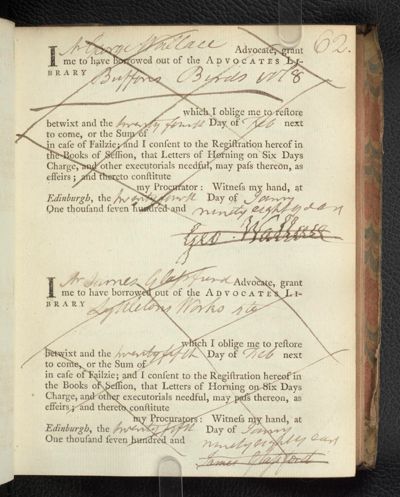 62.
I Mr George Wallace Advocate, grant
me to have borrowed out of the ADVOCATES LI-
BRARY Buffons Byrds vol 8
which I oblige me to reſtore
betwixt and the twenty fourth Day of Feb next
to come, or the Sum of
in caſe of Failzie; and I conſent to the Regiſtration hereof in
the Books of Seſſion, that Letters of Horning on Six Days
Charge, and other executorials needful, may paſs thereon, as
effeirs; and thereto conſtitute
my Procurator: Witneſs my hand, at
Edinburgh, the twenty fourth Day of Janry
One thouſand ſeven hundred and ninety eight years
Geo. Wallace
I Mr James Glassfurd Advocate, grant
me to have borrowed out of the ADVOCATES LI-
BRARY Lyttletons Works
which I oblige me to reſtore
betwixt and the twenty fifth Day of Feb next
to come, or the Sum of
in caſe of Failzie; and I conſent to the Regiſtration hereof in
the Books of Seſſion, that Letters of Horning on Six Days
Charge, and other executorials needful, may paſs thereon, as
effeirs; and thereto conſtitute
my Procurators: Witneſs my hand, at
Edinburgh, the twenty fifth Day of Janry
One thouſand ſeven hundred and ninety eight years
James Glassford